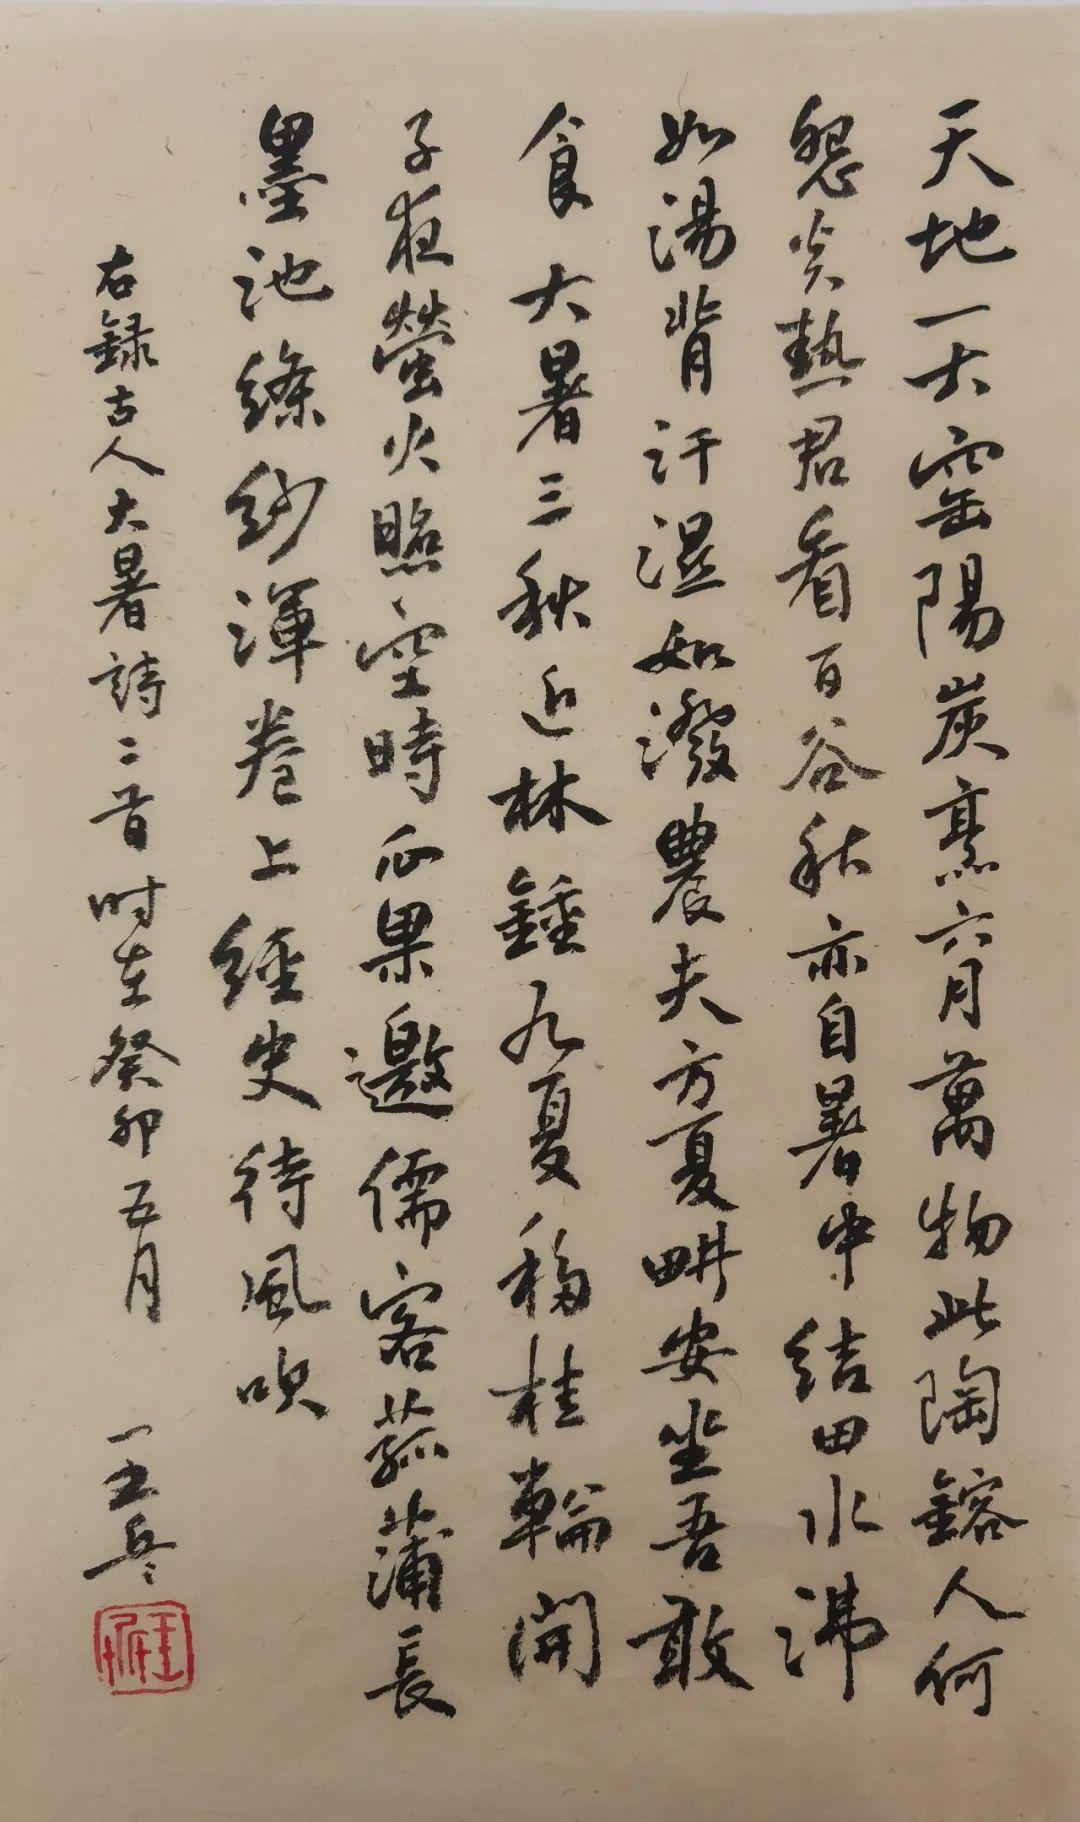 天地一大窑陽炭烹六月萬物此陶鎔人何
怨炎熱君看百谷秋亦自暑中結田水沸
如湯背汗濕如潑農夫方夏畊安坐吾敢
食大暑三秋近林鍾九夏移桂輪開
子夜螢火照空時瓜果邀儒客菰蒲長
墨池絳紗渾卷上經史待風吹
右録古人大暑詩二首时在癸卯五月 一王兵